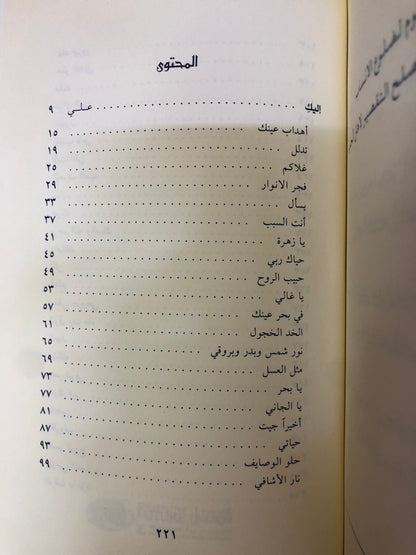 المحتوى
إليكِ . . . . . . . . . . . . . . . . . . علـي ٩
أهداب عينك . . . . . . . . . . . . . . . . . . ١٥
تدلل . . . . . . . . . . . . . . . . . . ١٩
غلاكم . . . . . . . . . . . . . . . . . . ٢٥
فجر الانوار . . . . . . . . . . . . . . . . . . ٢٩
يسأل . . . . . . . . . . . . . . . . . . ٣٣
أنت السبب . . . . . . . . . . . . . . . . . . ٣٧
يا زهرة . . . . . . . . . . . . . . . . . . ٤١
حياك ربي . . . . . . . . . . . . . . . . . . ٤٥
حبيب الروح . . . . . . . . . . . . . . . . . . ٤٩
يا غالي . . . . . . . . . . . . . . . . . . ٥٣
في بحر عينك . . . . . . . . . . . . . . . . . . ٥٧
الخد الخجول . . . . . . . . . . . . . . . . . . ٦١
نور شمس وبدر وبروقي . . . . . . . . . . . . ٦٥
مثل العسل . . . . . . . . . . . . . . . . . . ٦٩
يا بحر . . . . . . . . . . . . . . . . . . ٧٣
يا الجاني . . . . . . . . . . . . . . . . . . ٧٧
أخيراً جيت . . . . . . . . . . . . . . . . . . ٨١
حياتي . . . . . . . . . . . . . . . . . . ٨٧
حلو الوصايف . . . . . . . . . . . . . . . . . . ٩٣
نار الأشافي . . . . . . . . . . . . . . . . . . ٩٩
٢٢١